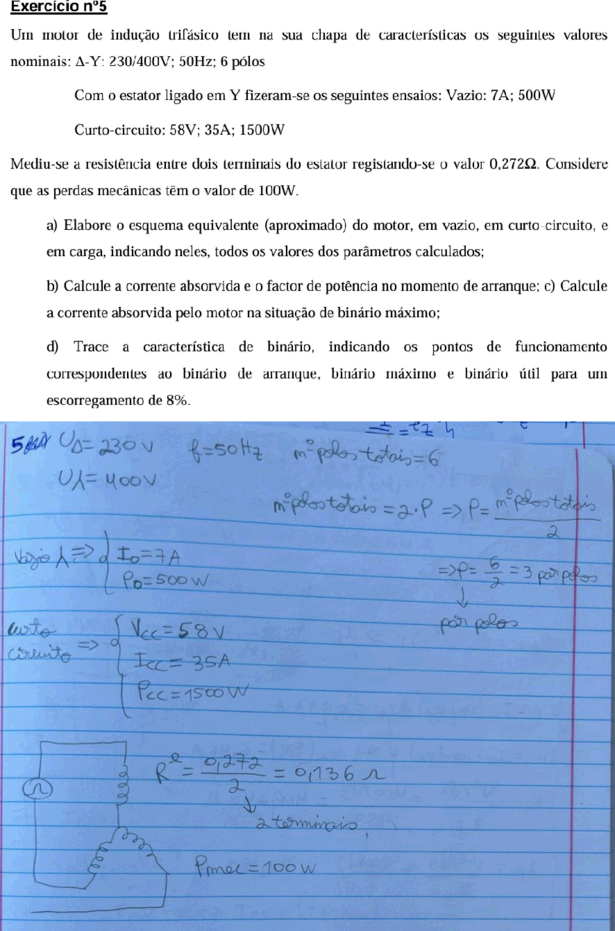 Exercício nº5
Um motor de indução trifásico tem na sua chapa de características os seguintes valores
nominais: Δ-Y: 230/400V; 50Hz; 6 pólos
Com o estator ligado em Y fizeram-se os seguintes ensaios: Vazio: 7A; 500W
Curto-circuito: 58V; 35A; 1500W
Mediu-se a resistência entre dois terminais do estator registando-se o valor 0,272Ω. Considere
que as perdas mecânicas têm o valor de 100W.
a) Elabore o esquema equivalente (aproximado) do motor, em vazio, em curto-circuito, e
em carga, indicando neles, todos os valores dos parâmetros calculados;
b) Calcule a corrente absorvida e o factor de potência no momento de arranque; c) Calcule
a corrente absorvida pelo motor na situação de binário máximo;
d) Trace a característica de binário, indicando os pontos de funcionamento
correspondentes ao binário de arranque, binário máximo e binário útil para um
escorregamento de 8%.
UΔ=230V f=50Hz nº polos totais=6
Uλ=400V
nº polos totais = 2·P => P= nº polos totais / 2
vazio λ => { I0=7A
P0=500W
=> P= 6/2 = 3 par polos
par polos
curto circuito => { Vcc=58V
Icc=35A
Pcc=1500W
Re = 0,272/2 = 0,136 Ω
2 terminais
Pmec=100W